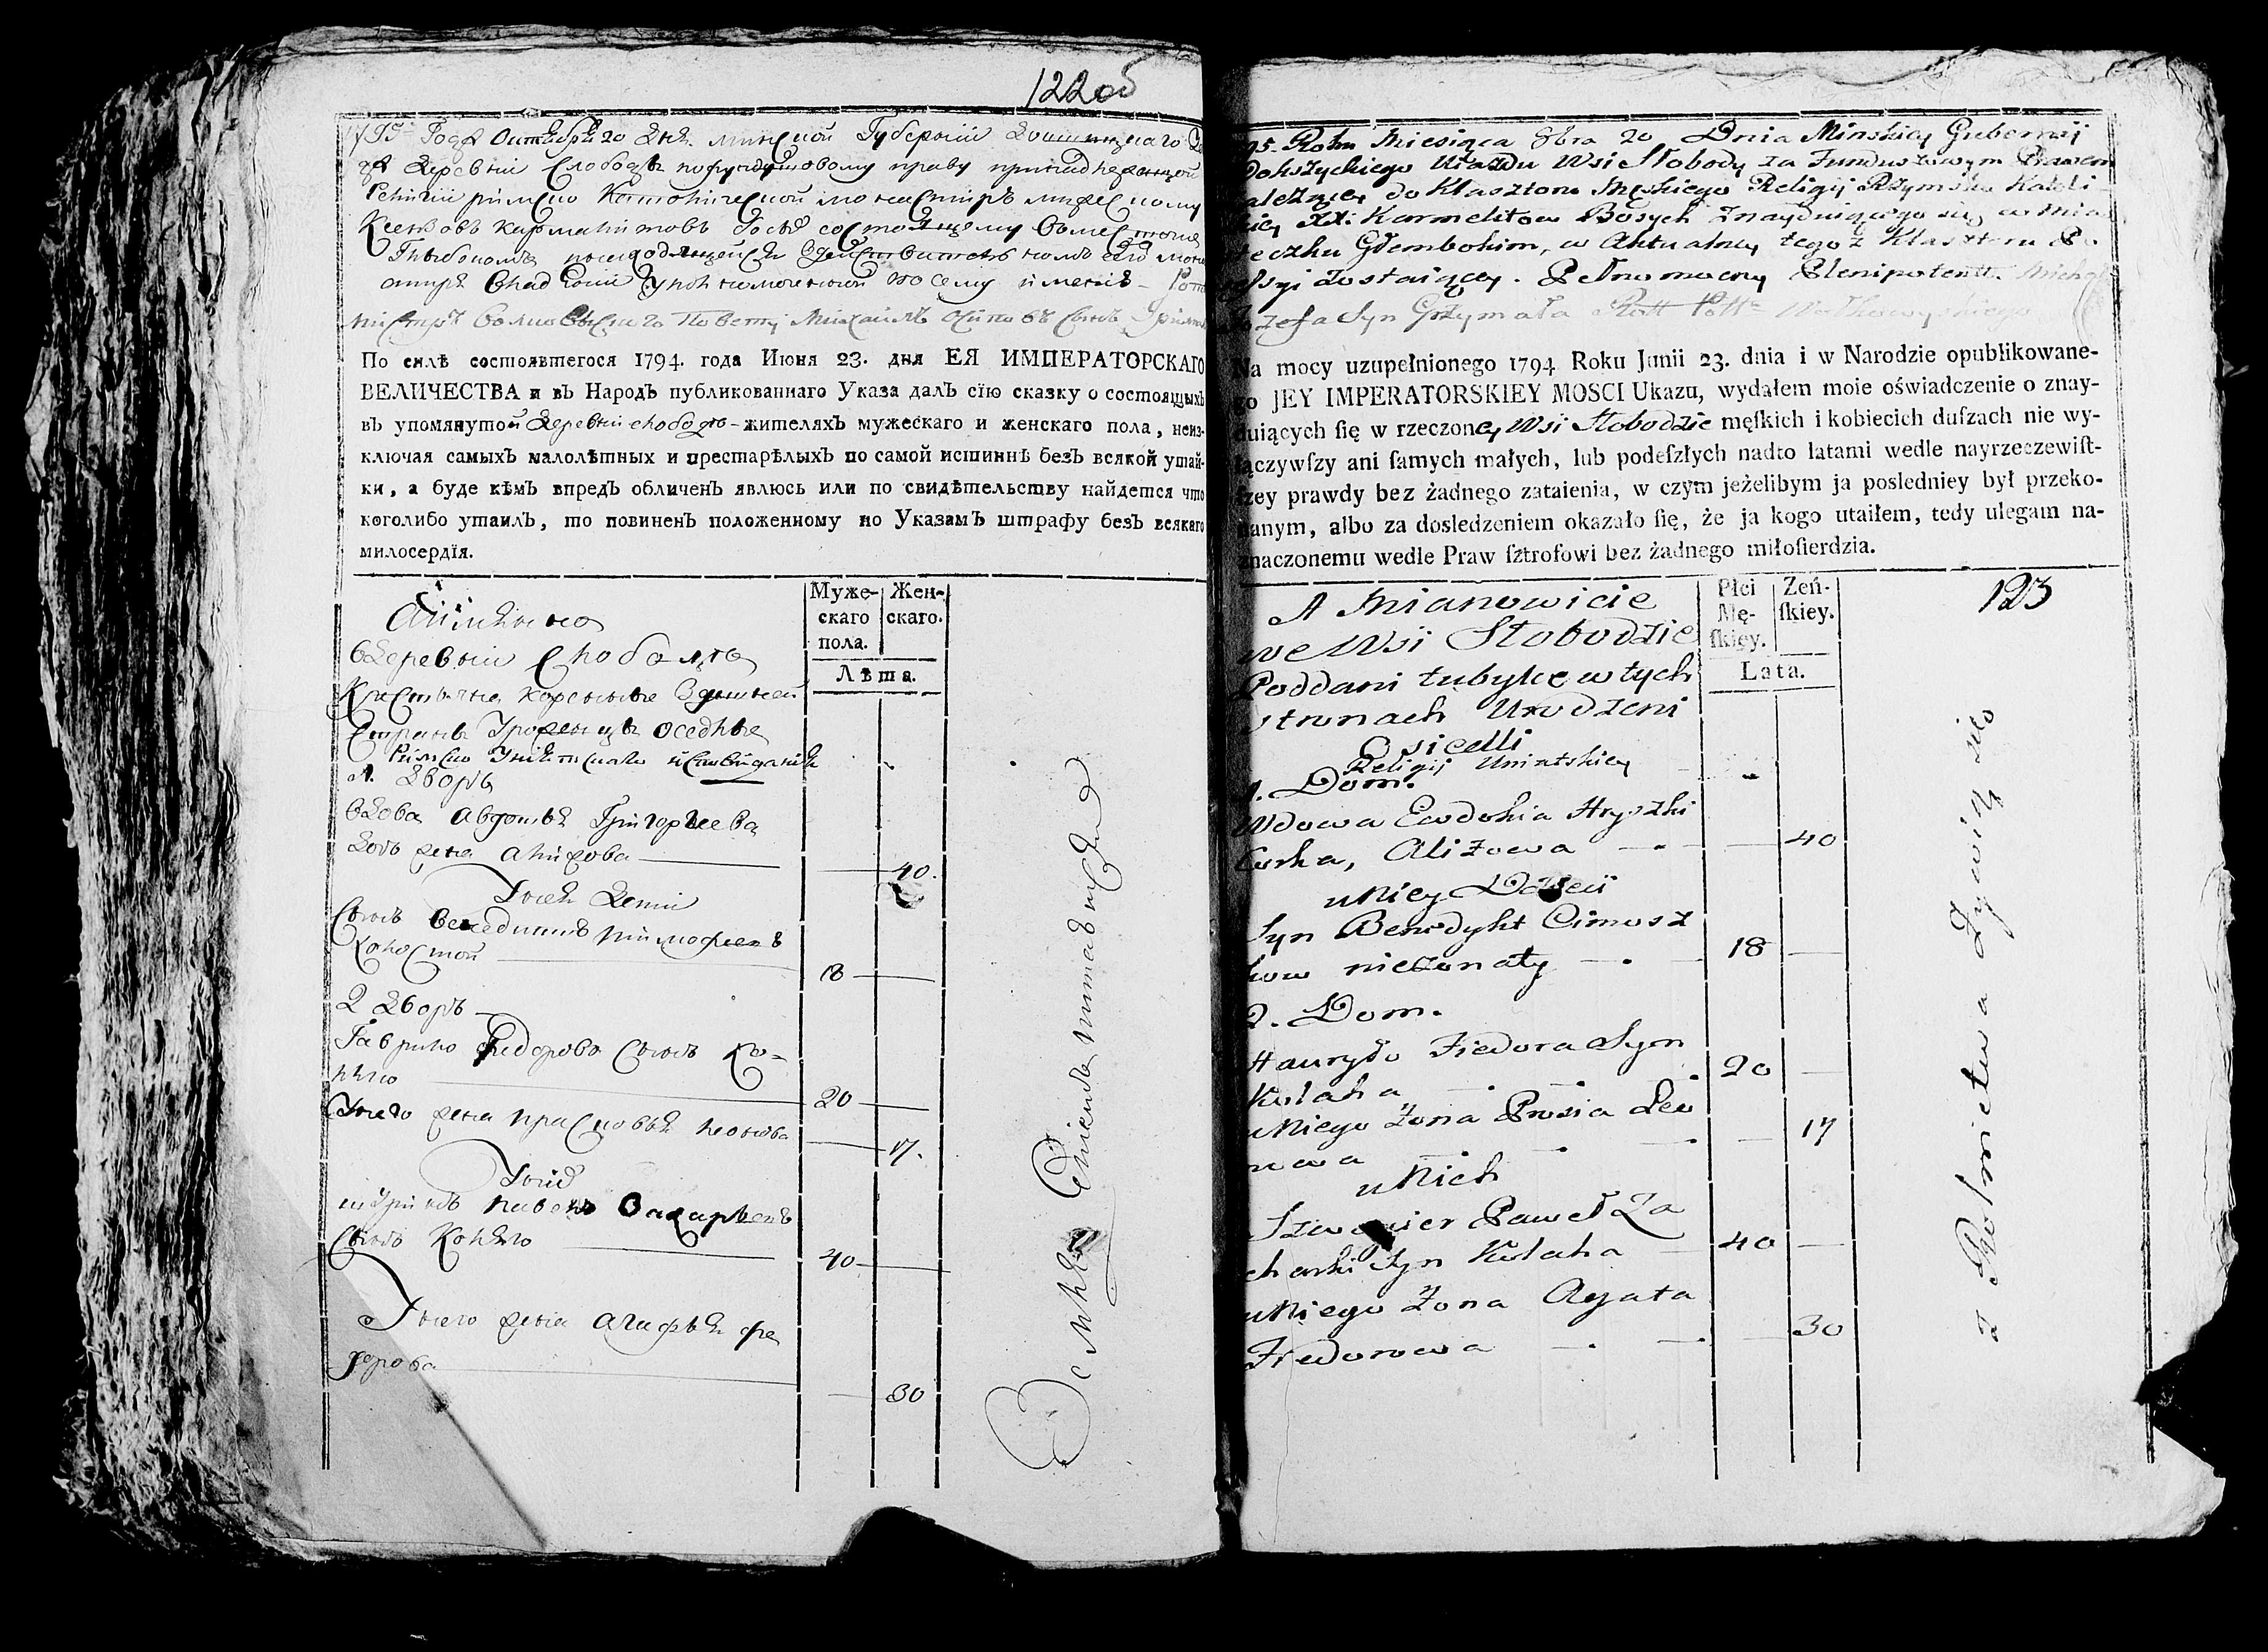 122об
Года Октября 20 дня минской Губернии Докшицкаго
деревни Слободы по фундушовому праву принадлежащей
Религии римско Католической монастирю мужескому
Ксендзовъ кармалитовъ босыхъ состоящему въ местечке
Глыбокомъ находящейся в действительномъ его мона
стиря владении уполномоченной по сему имению Рот
мистръ Волковыскаго Повету Михаилъ Осиповъ сынъ
По силѣ состоявшегося 1794. года Июня 23. дня ЕЯ ИМПЕРАТОРСКАГО
ВЕЛИЧЕСТВА и въ Народъ публикованнаго Указа далъ сїю сказку о состоящыхъ
въ упомянутой деревни слободѣ - жителяхъ мужескаго и женскаго пола, неиз-
ключая самыхъ малолѣтныхъ и престарѣлыхъ по самой истиннѣ безъ всякой утай-
ки, а буде кѣмъ впредъ обличенъ явлюсь или по свидѣтельству найдется что
коголибо утаилъ, то повиненъ положенному по Указамъ штрафу безъ всякаго
милосердїя.
Муже- Жен-
скаго скаго.
пола.
Лѣта.
А имянно
в деревни Слободѣ
Крестьяне коренные здешней
страны Уроженцы оседлые
Римско Униятскаго исповедания
1. дворъ
вдова Авдотья Григорьева
дочь жена Ализова 40.
У нея дети
Сынъ Бенедиктъ тимофеевъ
холостой 18
2 дворъ
Гаврило Федорова сынъ Ко-
ляго 20
У него жена прасковья леонова 17.
У нихъ
швагринъ павелъ Захарьевъ
Сынъ Коляго 40
У него жена агафья фе
дорова 30
95. Roku Miesiąca 8bra 20 Dnia Minskiey Gubernij
Dokszyckiego Ujazdu Wsi Słobody za Funduszowym Prawem
należącey do Klasztoru Męskiego Religij Rzymsko Katoli
kiey XX: Karmelitow Bosych Znayduiącego się w Mia
steczku Głembokim, w Aktualney tegoż Klasztoru Po
ssesyi zostaiącey. Pełnomocny Plenipotent. Michał
Józefa Syn Grzymała Rott Wołkowyskiego
Na mocy uzupełnionego 1794 Roku Junii 23. dnia i w Narodzie opublikowane-
go JEY IMPERATORSKIEY MOSCI Ukazu, wydałem moie oświadczenie o znay-
duiących ſię w rzeczoney Wsi Słobodzie męſkich i kobiecich duſzach nie wy-
łączywſzy ani ſamych małych, lub podeſzłych nadto latami wedle nayrzeczewiſt-
ſzey prawdy bez żadnego zataienia, w czym jeżelibym ja posledniey był przeko-
nanym, albo za dosledzeniem okazało ſię, że ja kogo utaiłem, tedy ulegam na-
znaczonemu wedle Praw ſztrofowi bez żadnego miłoſierdzia.
Płci Zeń-
Mę- ſkiey.
ſkiey.
Lata.
123
A Mianowicie
we Wsi Słobodzie
Poddani tubylce w tych
stronach Urodzeni
Osiedli
Religij Uniatskiey
1. Dom.
Wdowa Ewdokia Hryszki
Corka, Alizowa 40
u Niey Dzieci
Syn Benedykt Cimosz
kow nieżonaty 18
2. Dom.
Hauryło Fiedora Syn
Kulaha 20
u Niego Żona Prosia Leo
nowa 17
u Nich
Szwagier Paweł Za
charki Syn Kulaha 40
u Niego Żona Agata
Fiedorowa 30